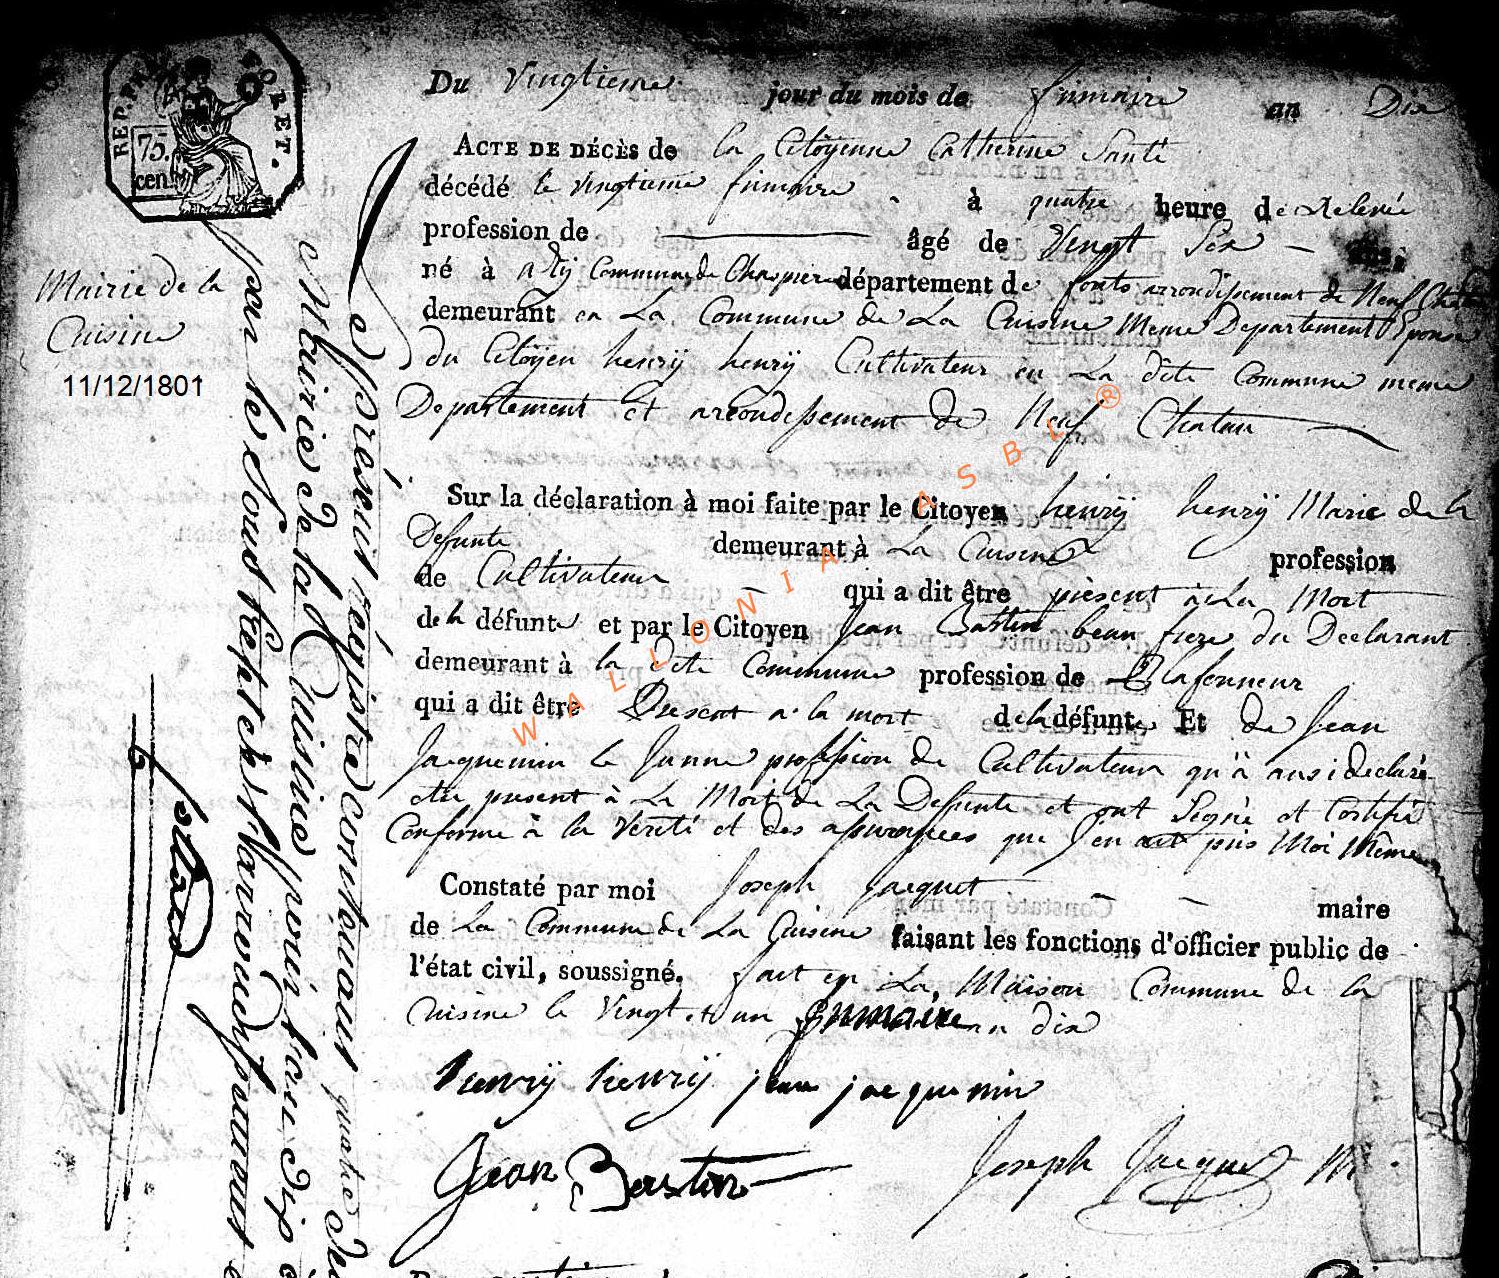 REP. FRA. RET.
75.
cen.
Du vingtieme jour du mois de frimaire an Dix
ACTE DE DÉCÈS de la Citoÿenne Catherine Santé
décédé le vingtieme frimaire à quatre heure de Relevée
profession de âgé de Vengt Six ans.
né à Commune de département de arrondissement de Neuf
demeurant en La Commune de La Cuisine Meme Departement Eponse
du Citoÿen henrÿ henrÿ Cultivateur en La dite Commune meme
Departement et arrondissement de Neuf Chatau
Sur la déclaration à moi faite par le Citoyen henrÿ henrÿ Marie de la
Defunte demeurant à La Cuisine profession
de Cultivateur qui a dit être présent à La Mort
de la défunte et par le Citoyen Jean Bastin beau frere du Declarant
demeurant à la dite Commune profession de Plafonneur
qui a dit être Present a la mort de la défunte Et de Jean
Jacquemin le Junne profession de Cultivateur qu'a ausi declaré
etre present à La Mort de La Defunte et ont Segné et Certifié
Conforme à la Verité et des assurances que J'en ait pris Moi Même
Constaté par moi Joseph Jacquet maire
de La Commune de La Cuisine faisant les fonctions d'officier public de
l'état civil, soussigné. fait en La Maison Commune de la
Cuisine le Vingt et un frimaire an dix
henrÿ henrÿ jean jacquemin
Jean Bastin Joseph Jacquet
Mairie de la
Cuisine
11/12/1801
Le présent régistre contenant quatre
Mairie de la Cuisine
par le Sous
WALLONIA ASBL ®